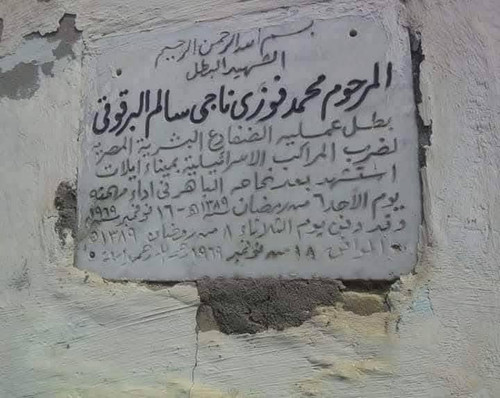 بسم الله الرحمن الرحيم
الشهيد البطل
المرحوم محمد فوزى ناجى سالم البرقوقى
بطل عملية الضفادع البشرية المصرية
لضرب المراكب الاسرائيلية بميناء ايلات
استشهد بعد نجاحه الباهر فى اداء مهمته
يوم الأحد ٦ من رمضان ١٣٨٩هـ - ١٦ نوفمبر ١٩٦٩
وقد دفن يوم الثلاثاء ٨ من رمضان ١٣٨٩هـ
الموافق ١٨ من نوفمبر ١٩٦٩